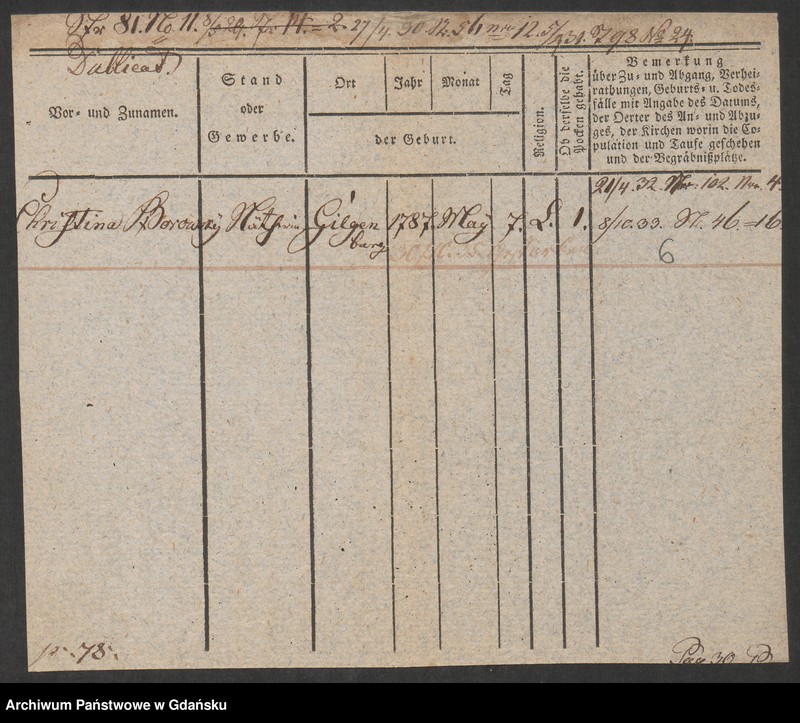 81. No. 11.
27/4. 30. 56 12. No 24.
Dublicat.
Vor- und Zunamen.
Stand
oder
Gewerbe.
Ort
Jahr
Monat
Tag
der Geburt.
Religion.
Ob derselbe die
Pocken gehabt.
Bemerkung
über Zu- und Abgang, Verhei-
rathungen, Geburts- u. Todes-
fälle mit Angabe des Datums,
der Oerter des An- und Abzu-
ges, der Kirchen worin die Co-
pulation und Taufe geschehen
und der Begräbnißplätze.
21/4. 32. 102. 4.
Christina Borowsky Näthrin Gilgen 1787. May 7. L. 1. 8/10. 33. N. 46. 16.
burg
6
p. 78.
Pag 30.
Archiwum Państwowe w Gdańsku